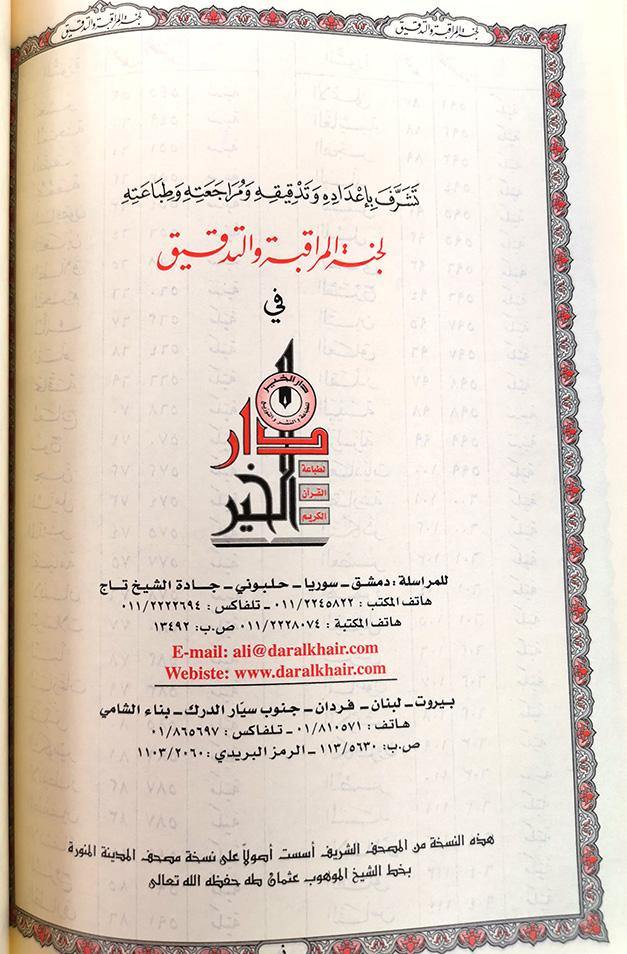 لجنة المراقبة والتدقيق
لجنة المراقبة والتدقيق
تَشَرَّفَ بِإِعْدَادِهِ وَتَدْقِيقِهِ وَمُرَاجَعَتِهِ وَطِبَاعَتِهِ
لجنة المراقبة والتدقيق
في
دار الخير
للطباعة والنشر والتوزيع
دار
الخير
لطباعة
القرآن
الكريم
للمراسلة : دمشق ـ سوريا ـ حلبوني ـ جادة الشيخ تاج
هاتف المكتب : ٠١١/٢٢٤٥٨٢٢ ـ تلفاكس : ٠١١/٢٢٢٢٦٩٤
هاتف المكتبة : ٠١١/٢٢٢٨٠٧٤ ص.ب: ١٣٤٩٢
E-mail: ali@daralkhair.com
Webiste: www.daralkhair.com
بيروت ـ لبنان ـ فردان ـ جنوب سيّار الدرك ـ بناء الشامي
هاتف : ٠١/٨١٠٥٧١ ـ تلفاكس : ٠١/٨٦٥٦٩٧
ص.ب: ١١٣/٥٦٣٠ ـ الرمز البريدي : ١١٠٣/٢٠٦٠
هذه النسخة من المصحف الشريف أسست أصولاً على نسخة مصحف المدينة المنورة
بخط الشيخ الموهوب عثمان طه حفظه الله تعالى